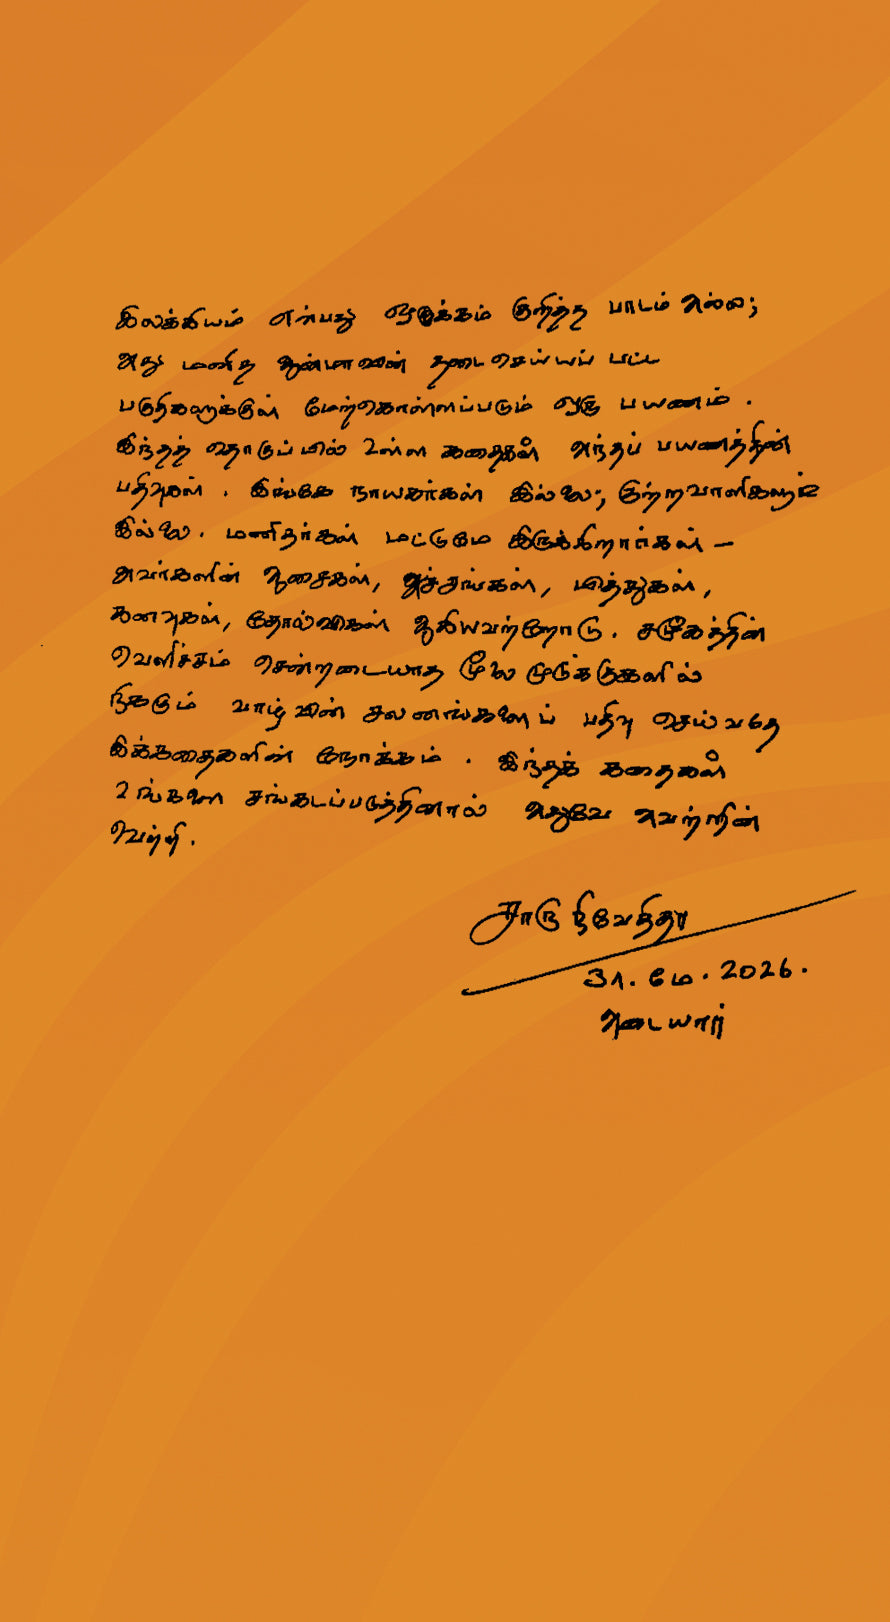 இலக்கியம் என்பது ஒழுக்கம் குறித்த பாடம் அல்ல;
அது மனித ஆன்மாவின் தடைசெய்யப் பட்ட
பகுதிகளுக்குள் மேற்கொள்ளப்படும் ஒரு பயணம்.
இந்தத் தொகுப்பில் உள்ள கதைகள் அந்தப் பயணத்தின்
பதிவுகள். இங்கே நாயகர்கள் இல்லை; குற்றவாளிகளும்
இல்லை. மனிதர்கள் மட்டுமே இருக்கிறார்கள் –
அவர்களின் ஆசைகள், அச்சங்கள், பித்துகள்,
கனவுகள், தோல்விகள் ஆகியவற்றோடு. சமூகத்தின்
வெளிச்சம் சென்றடையாத மூலை முடுக்குகளில்
நிகழும் வாழ்வின் சலனங்களைப் பதிவு செய்வதே
இக்கதைகளின் நோக்கம். இந்தக் கதைகள்
உங்களை சங்கடப்படுத்தினால் அதுவே அவற்றின்
வெற்றி.
சாரு நிவேதிதா
31. மே. 2026.
அடையார்